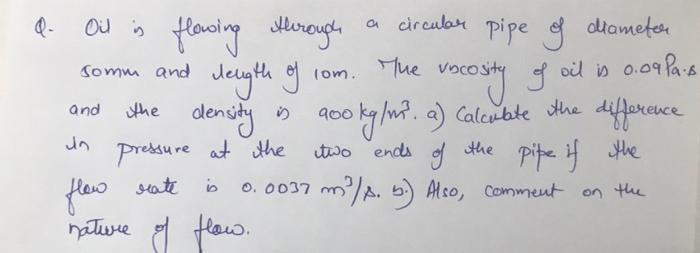 Q. Oil is flowing through a circular pipe of diameter
50mm and length of 10m. The viscosity of oil is 0.09 Pa.s
and the density is 900 kg/m³. a) Calculate the difference
in pressure at the two ends of the pipe if the
flow rate is 0.0037 m³/s. b.) Also, comment on the
nature of flow.